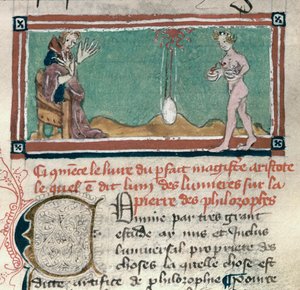 Ci cõmẽce le liure du pfait magistere aristote
le quel ẽ dit lumi des lumieres sur la
pierre des philozophes
Comme par tres grant
estude ay mis et Inclus
luniuersal propriete des
choses la quelle chose est
dicte artifice de philozophie